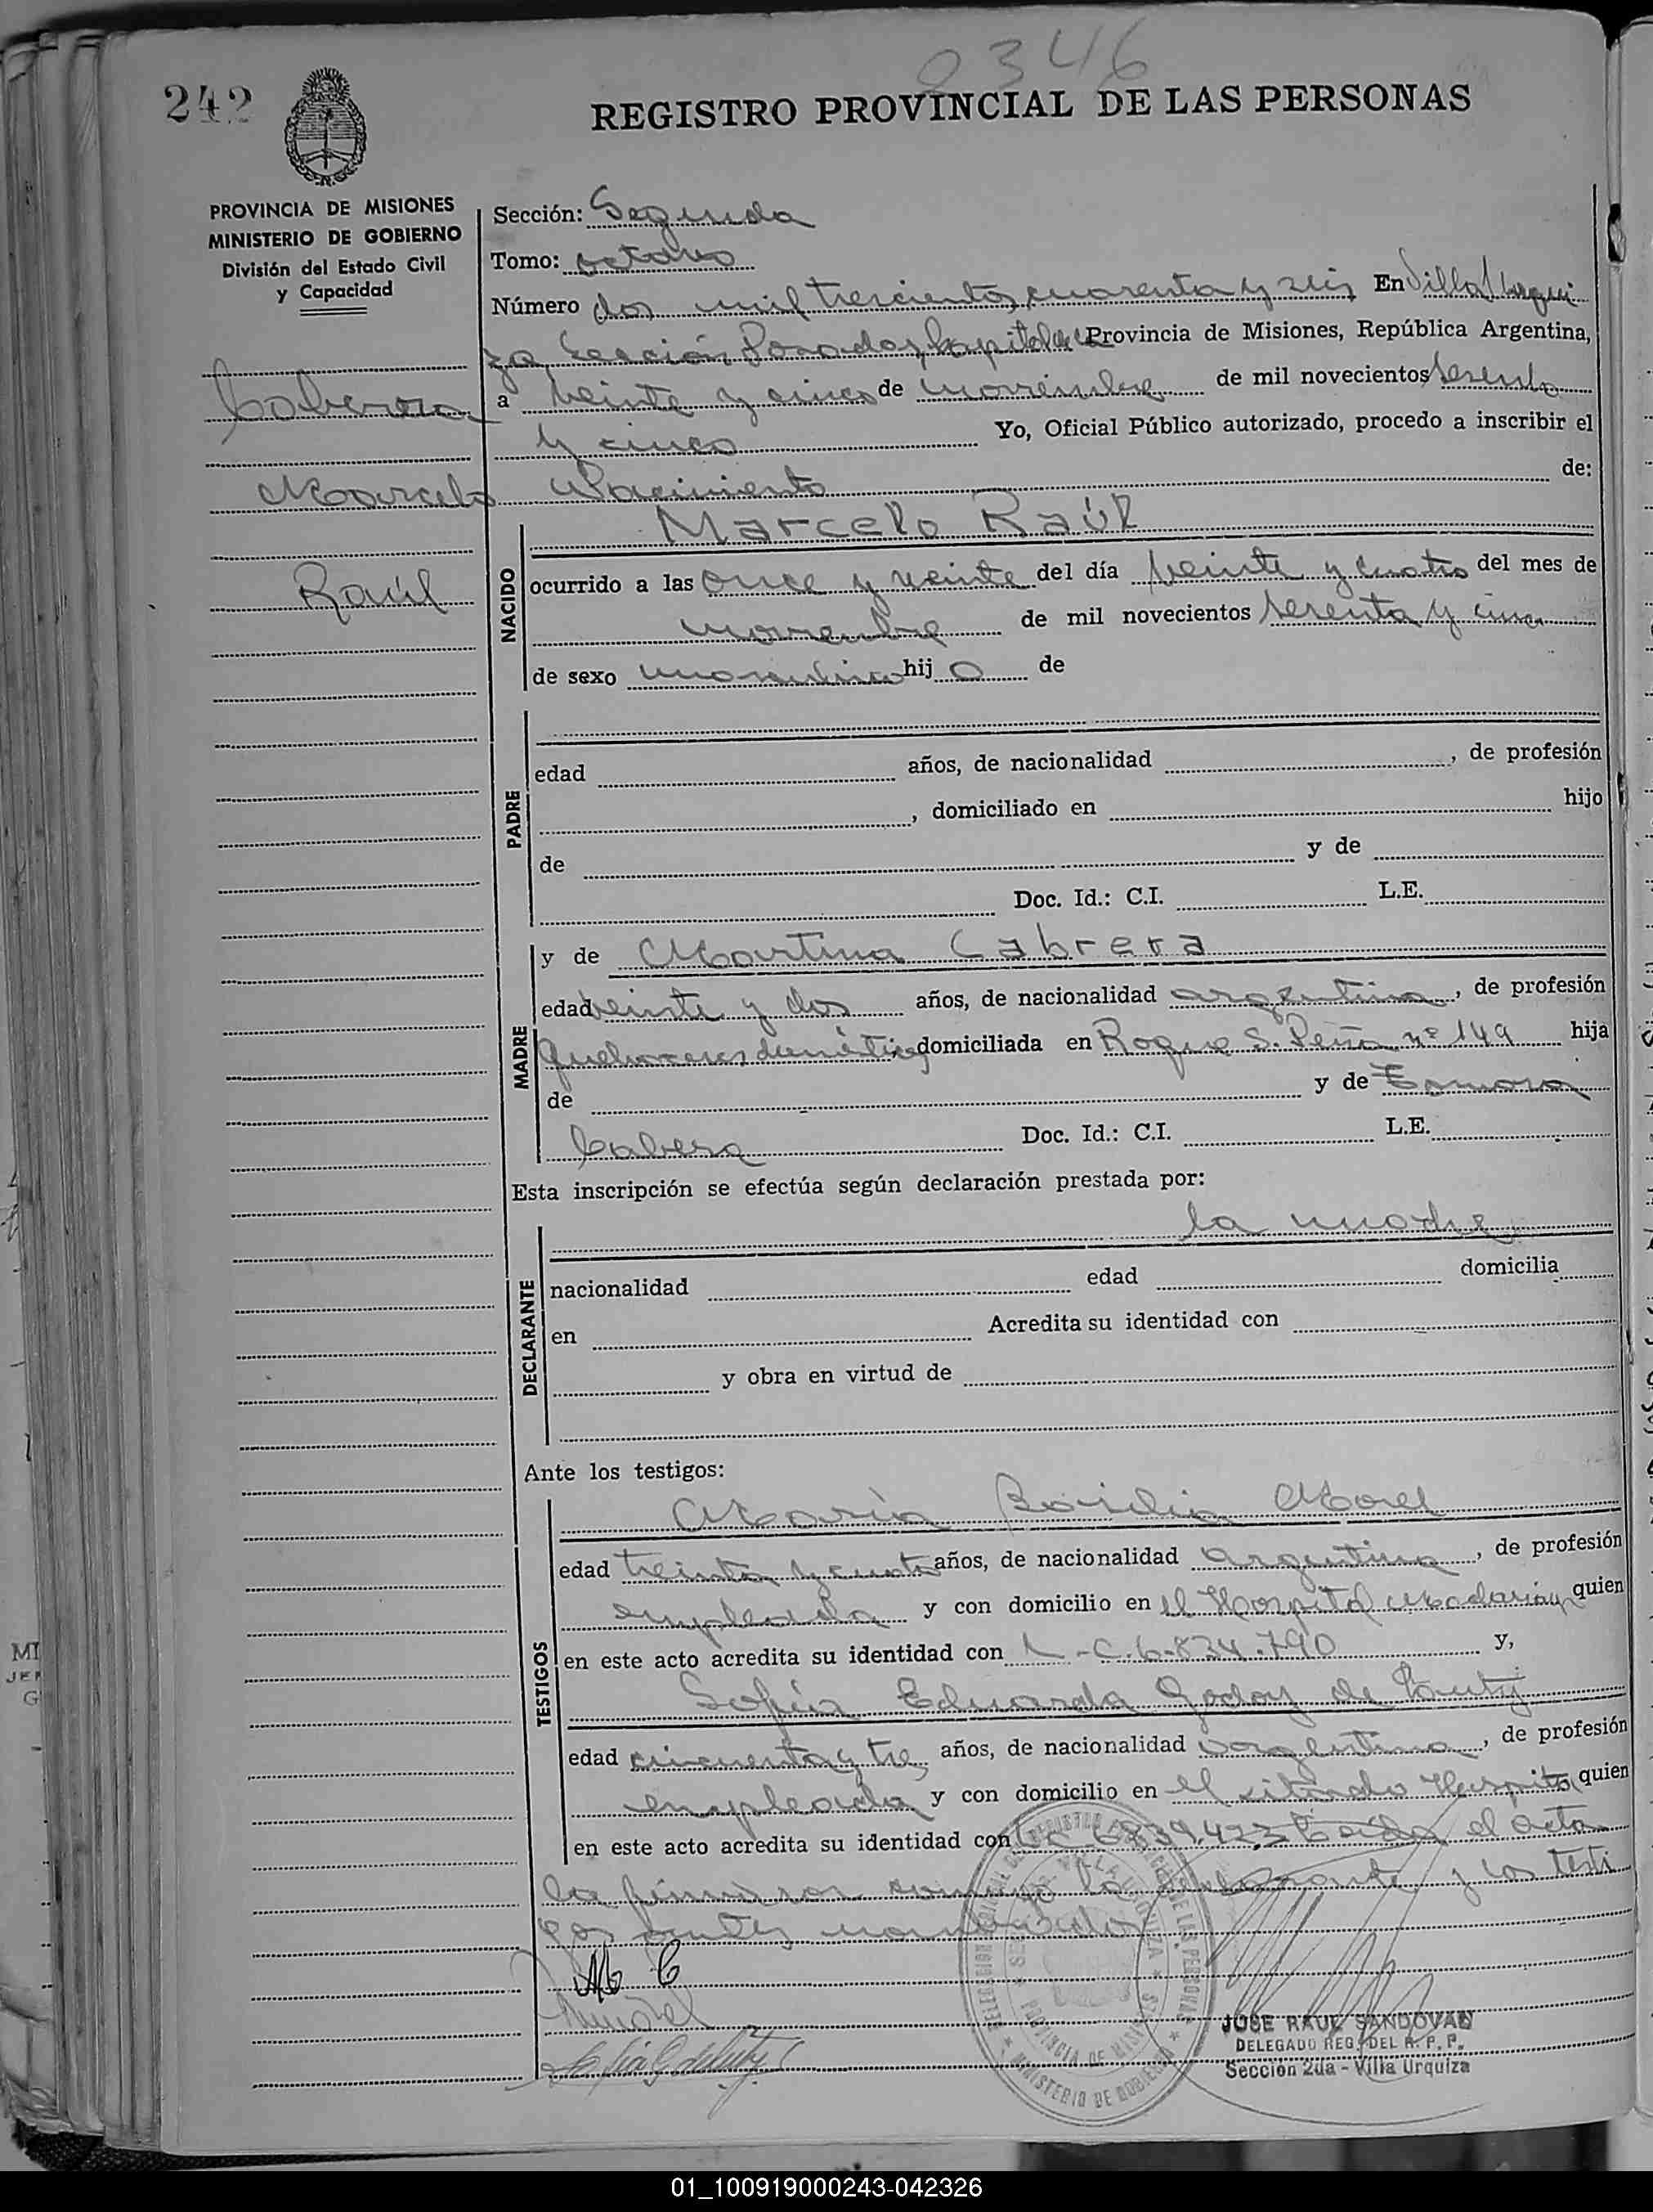 2346
242
REGISTRO PROVINCIAL DE LAS PERSONAS
PROVINCIA DE MISIONES
MINISTERIO DE GOBIERNO
División del Estado Civil
y Capacidad
Sección: Segunda
Tomo: octavo
Número dos mil trescientos cuarenta y seis En Villa Urqui
za Sección Posadas, Capital de la Provincia de Misiones, República Argentina,
a veinte y cinco de noviembre de mil novecientos sesenta
y cinco Yo, Oficial Público autorizado, procedo a inscribir el
Nacimiento de:
Cabrera
Marcelo
Raúl
NACIDO
Marcelo Raúl
ocurrido a las once y veinte del día veinte y cuatro del mes de
noviembre de mil novecientos sesenta y cinco
de sexo masculino hij o de
PADRE
edad años, de nacionalidad , de profesión
, domiciliado en hijo
de y de
Doc. Id.: C.I. L.E.
MADRE
y de Martina Cabrera
edad veinte y dos años, de nacionalidad argentina, de profesión
quehaceres domésticos domiciliada en Roque S. Peña nº 149 hija
de y de
Cabrera Doc. Id.: C.I. L.E.
Esta inscripción se efectúa según declaración prestada por:
DECLARANTE
la madre
nacionalidad edad domicilia
en Acredita su identidad con
y obra en virtud de
Ante los testigos:
TESTIGOS
María Morel
edad treinta y cuatro años, de nacionalidad argentina, de profesión
empleada y con domicilio en el Hospital Madariaga quien
en este acto acredita su identidad con L-C.6.834.790 y,
Sofía Eduarda Godoy de
edad cincuenta y tres años, de nacionalidad argentina, de profesión
empleada y con domicilio en el citado Hospital quien
en este acto acredita su identidad con LC 6839.423 Leída el acta
la firmaron conmigo la declarante y los testi
gos antes nombrados
M C
JOSE RAUL SANDOVAL
DELEGADO REG. DEL R. P. P.
Sección 2da - Villa Urquiza
01_100919000243-042326